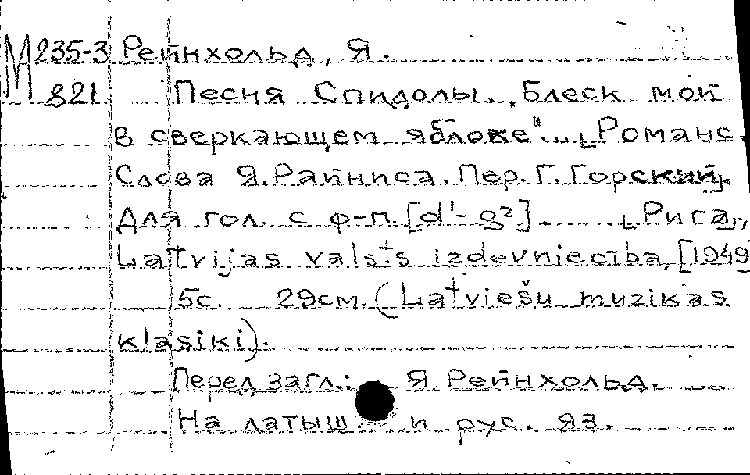 М 235-3 Рейнхольд, Я.
821 Песня Спидолы. „Блеск мой
в сверкающем яблоке"... [Романс.
Слова Я.Райниса. Пер. Г. Горский].
Для гол. с ф-п. [d¹-g²]. [Рига],
Latvijas valsts izdevniecība, [1949
5с. 29см. (Latviešu muzikas
klasiki).
Перед загл.: Я. Рейнхольд.
На латыш и рус. яз.